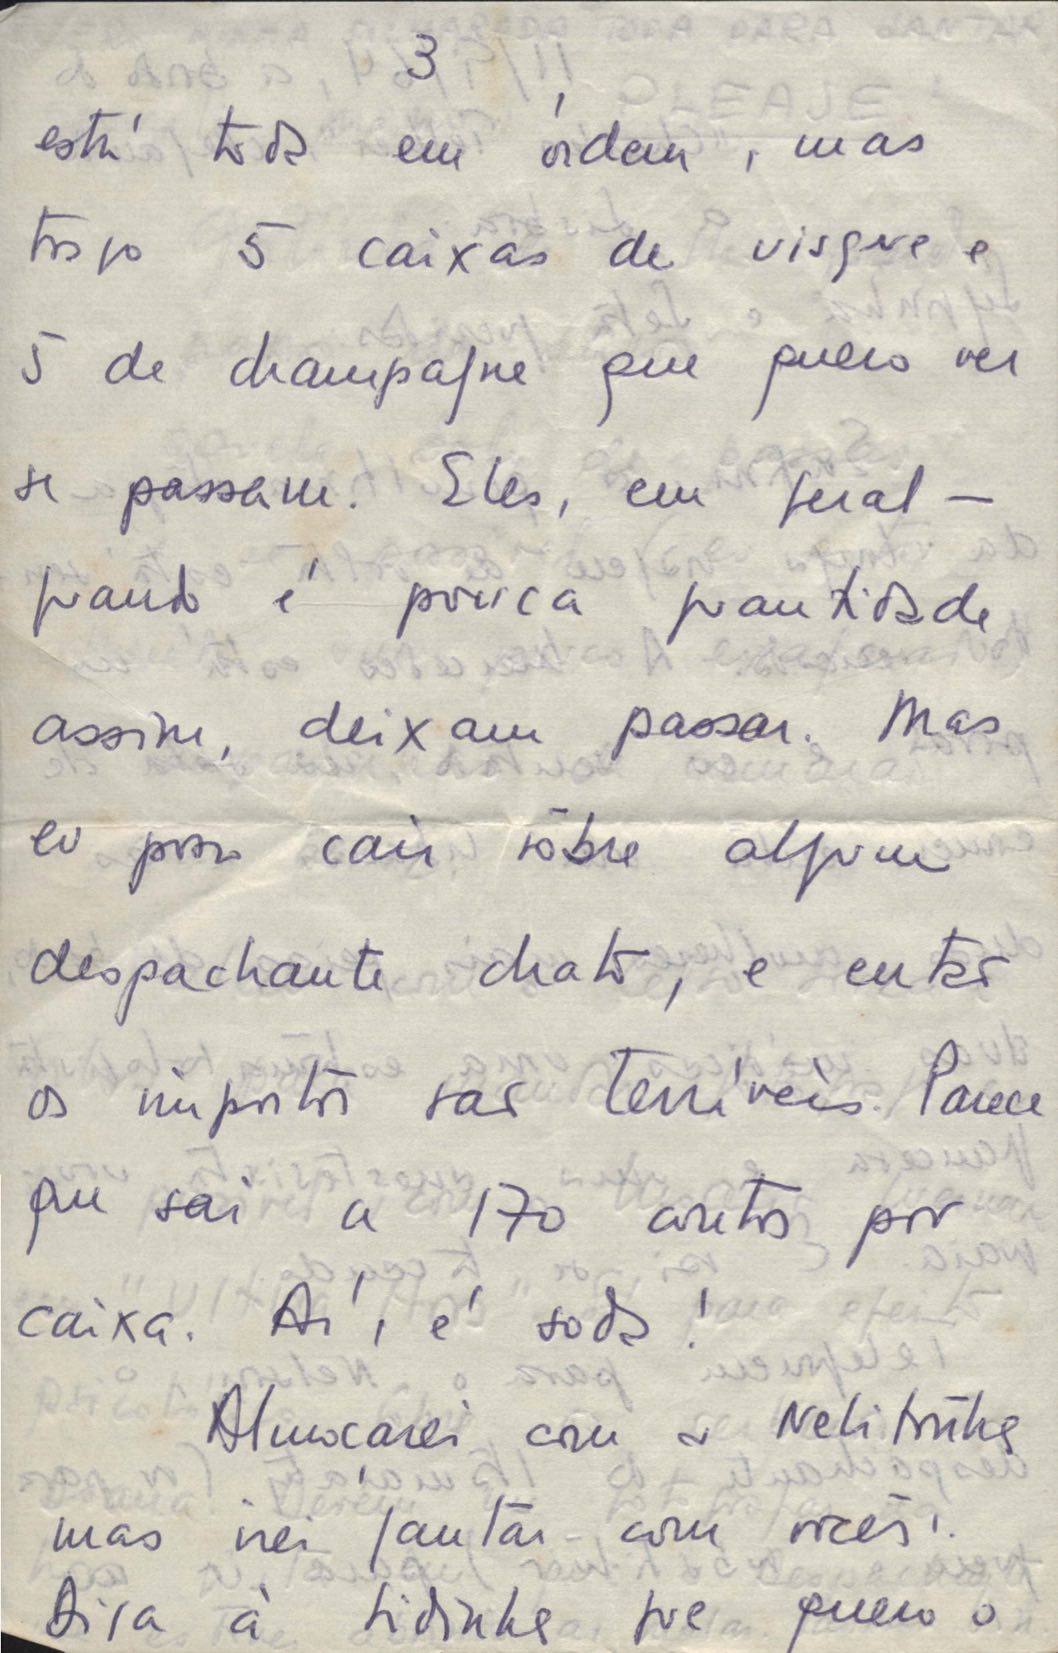 3
está todo em órdem, mas
trago 5 caixas de visque e
5 de champagne que quero ver
se passam. Eles, em geral —
quando é pouca quantidade
assim, deixam passar. Mas
eu posso cair sôbre algum
despachante chato, e então
os impostos são terríveis. Parece
que sai a 170 contos por
caixa. Aí, é soda!
Almocarei com a
mas irei jantar com vocês.
Diga à que quero o